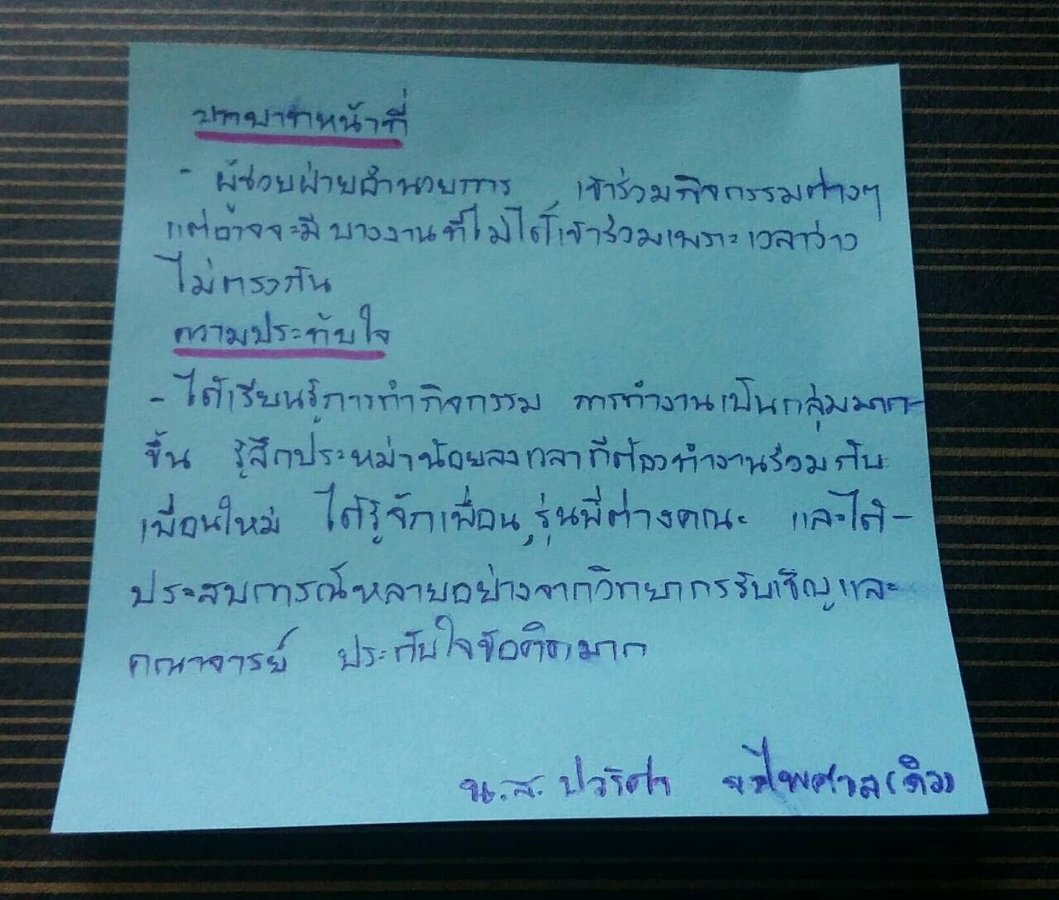 บทบาทหน้าที่
- ผู้ช่วยฝ่ายอำนวยการ เข้าร่วมกิจกรรมต่างๆ
แต่อาจจะมีบางงานที่ไม่ได้เข้าร่วมเพราะเวลาว่าง
ไม่ตรงกัน
ความประทับใจ
- ได้เรียนรู้การทำกิจกรรม การทำงานเป็นกลุ่มมาก
ขึ้น รู้สึกประหม่าน้อยลงเวลาที่ต้องทำงานร่วมกับ
เพื่อนใหม่ ได้รู้จักเพื่อน, รุ่นพี่ต่างคณะ และได้-
ประสบการณ์หลายอย่างจากวิทยากรรับเชิญและ
คณาจารย์ ประทับใจข้อคิดมาก
น.ส. ปวริศา